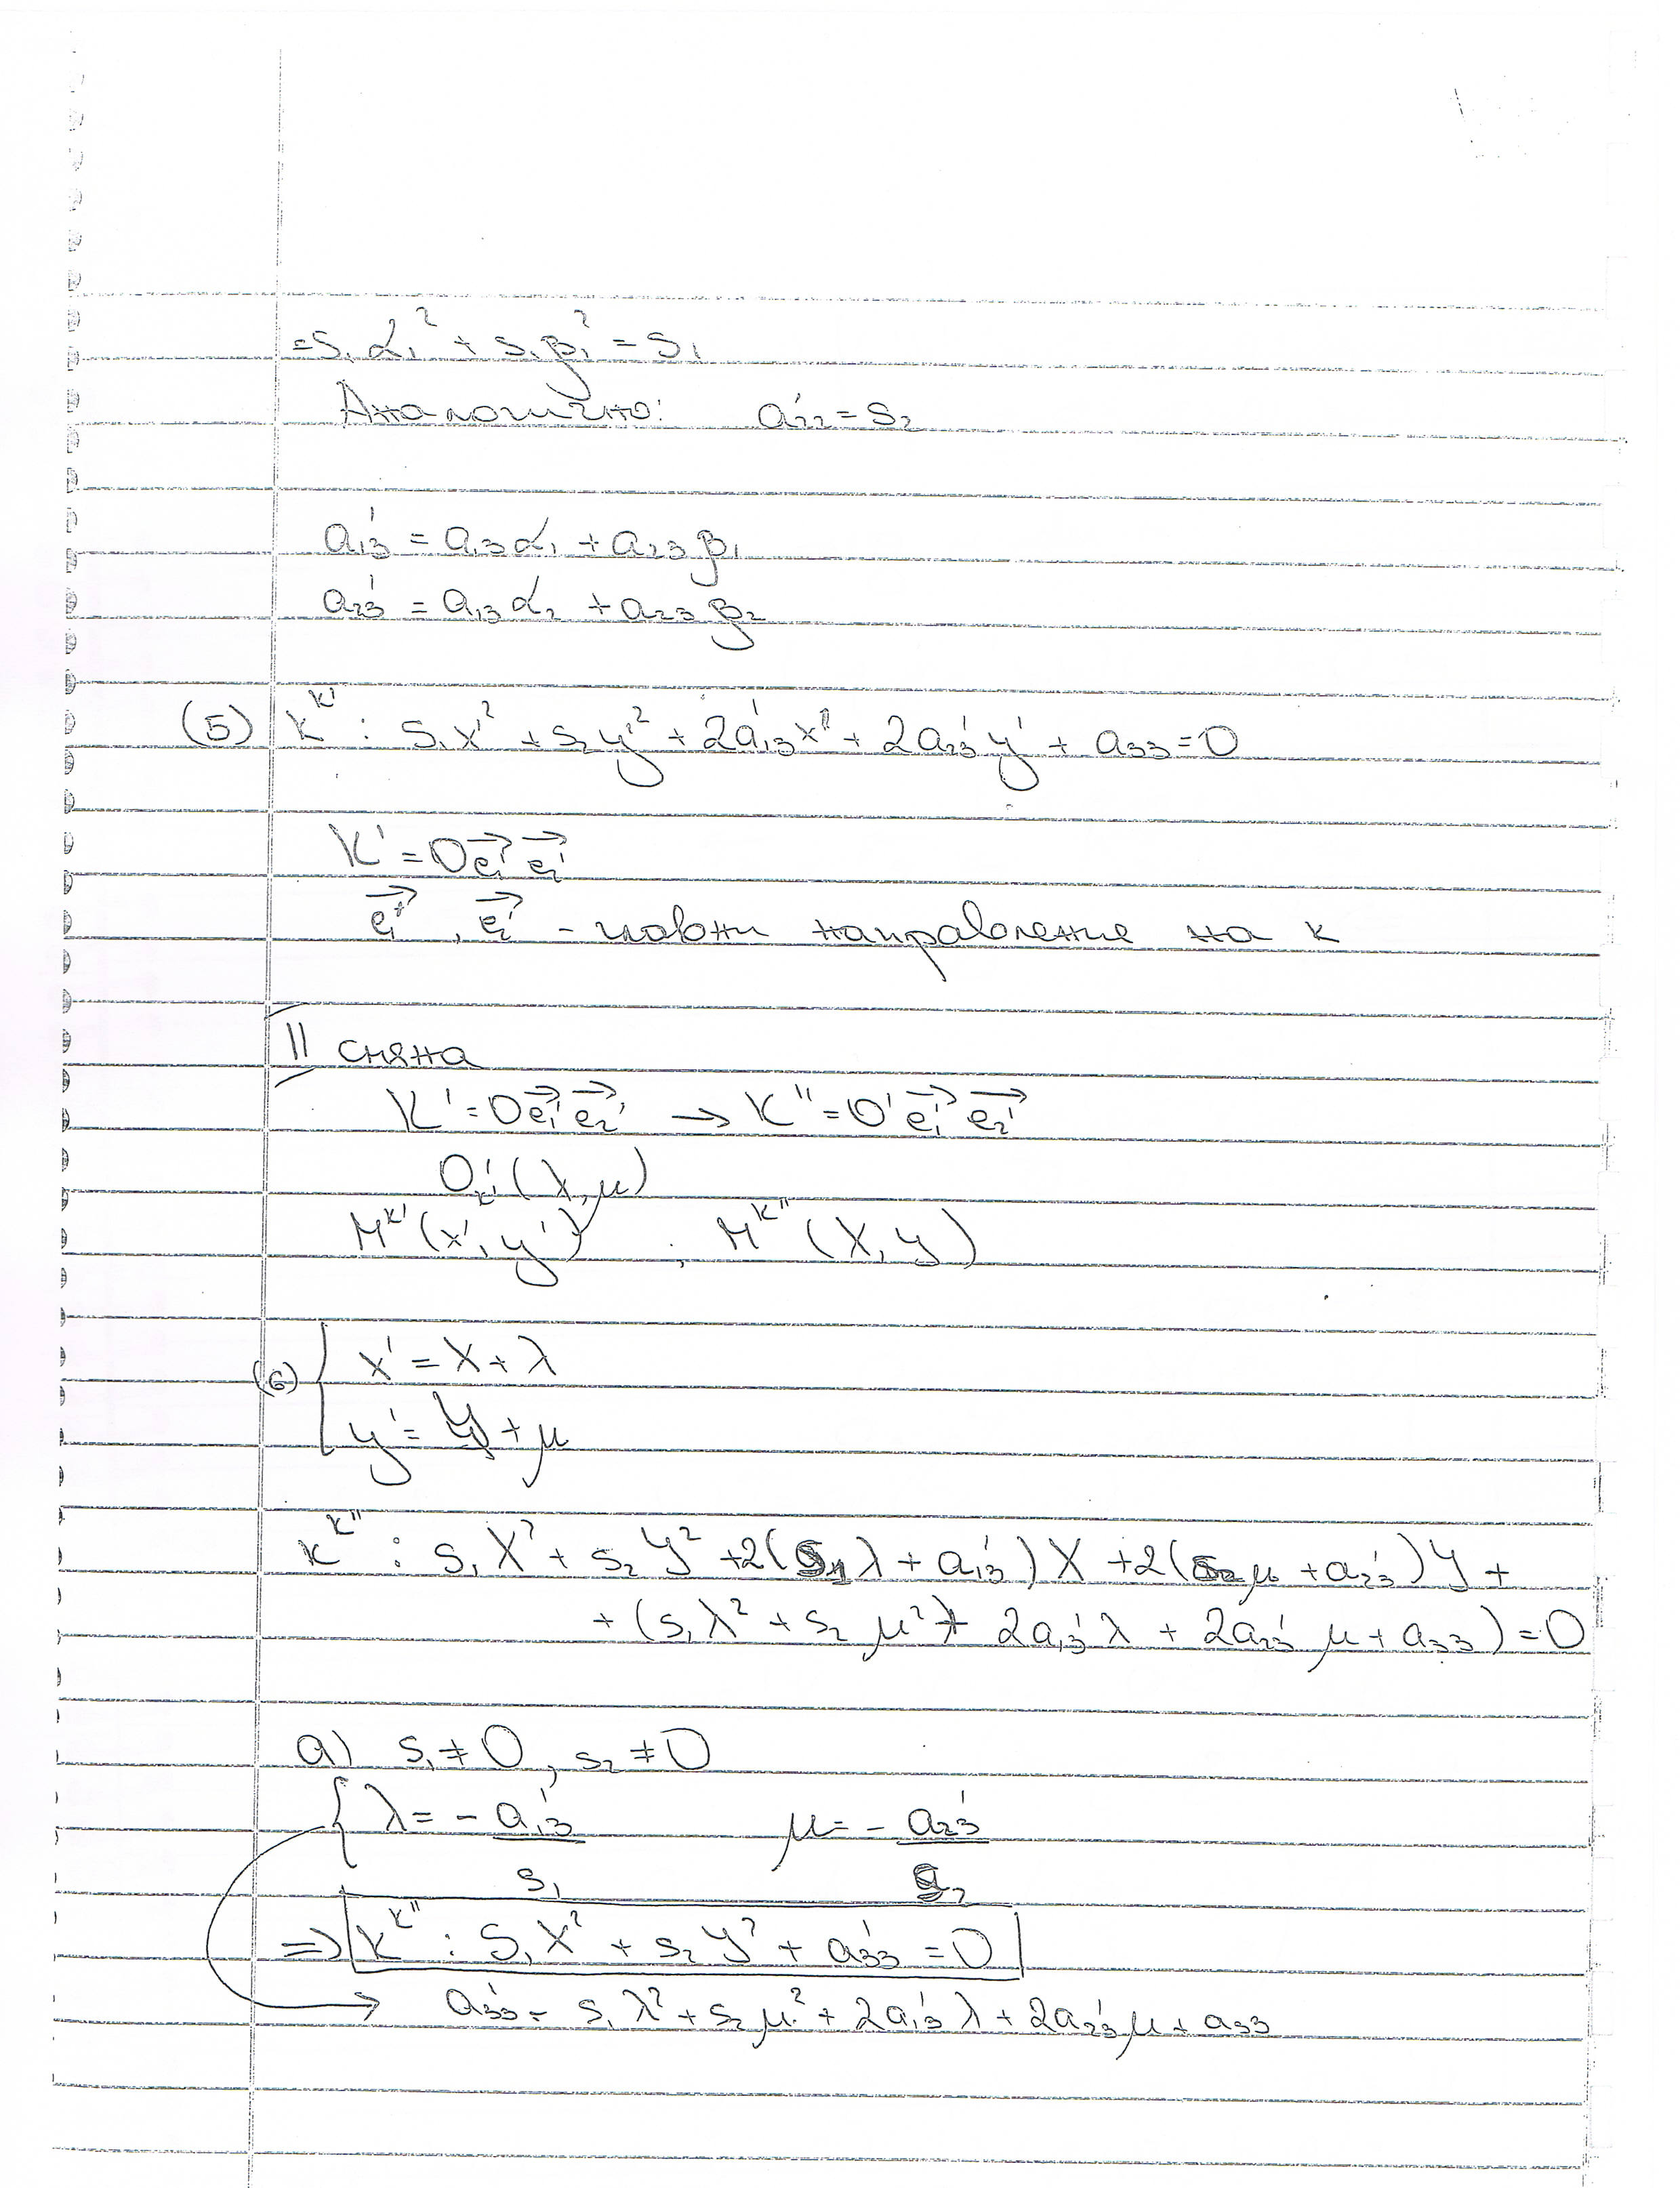 = s₁α₁² + s₁β₁² = s₁
Аналогично: a'₂₂ = s₂
a'₁₃ = a₁₃α₁ + a₂₃β₁
a'₂₃ = a₁₃α₂ + a₂₃β₂
(5) k^K' : s₁x'² + s₂y'² + 2a'₁₃x' + 2a'₂₃y' + a₃₃ = 0
K' = Oe₁'→ e₂'→
e₁'→, e₂'→ - главни направления на k
II смяна
K' = Oe₁'→ e₂'→ → K'' = O'e₁'→ e₂'→
O'_K' (λ, μ)
M^K' (x', y') , M^K'' (X, Y)
(6) { x' = X + λ
y' = Y + μ
k^K'' : s₁X² + s₂Y² + 2(s₁λ + a'₁₃)X + 2(s₂μ + a'₂₃)Y +
+ (s₁λ² + s₂μ² + 2a'₁₃λ + 2a'₂₃μ + a₃₃) = 0
a) s₁ ≠ 0, s₂ ≠ 0
{ λ = - a'₁₃ / s₁ μ = - a'₂₃ / s₂
=> k^K'' : s₁X² + s₂Y² + a'₃₃ = 0
a'₃₃ = s₁λ² + s₂μ² + 2a'₁₃λ + 2a'₂₃μ + a₃₃